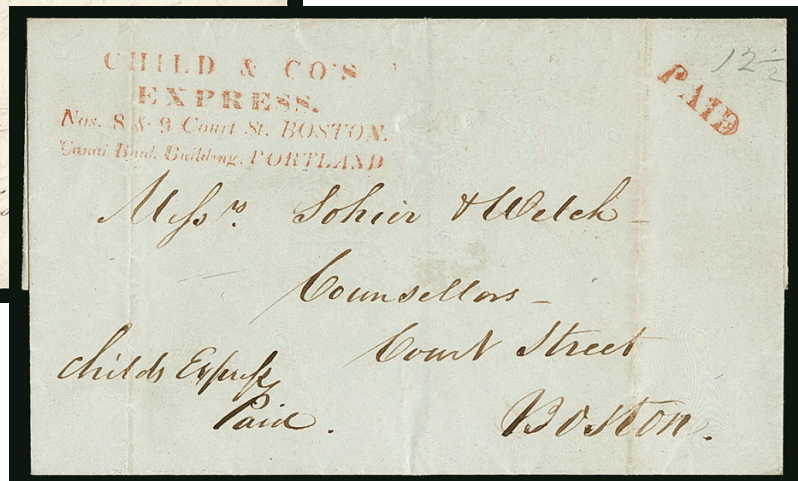 CHILD & CO'S
EXPRESS.
Nos. 8 & 9 Court St. BOSTON.
Canal Bank Building, PORTLAND
PAID
12 1/2
Messrs. Sohier & Welch
Counsellors
Court Street
Boston.
Childs Express
Paid.